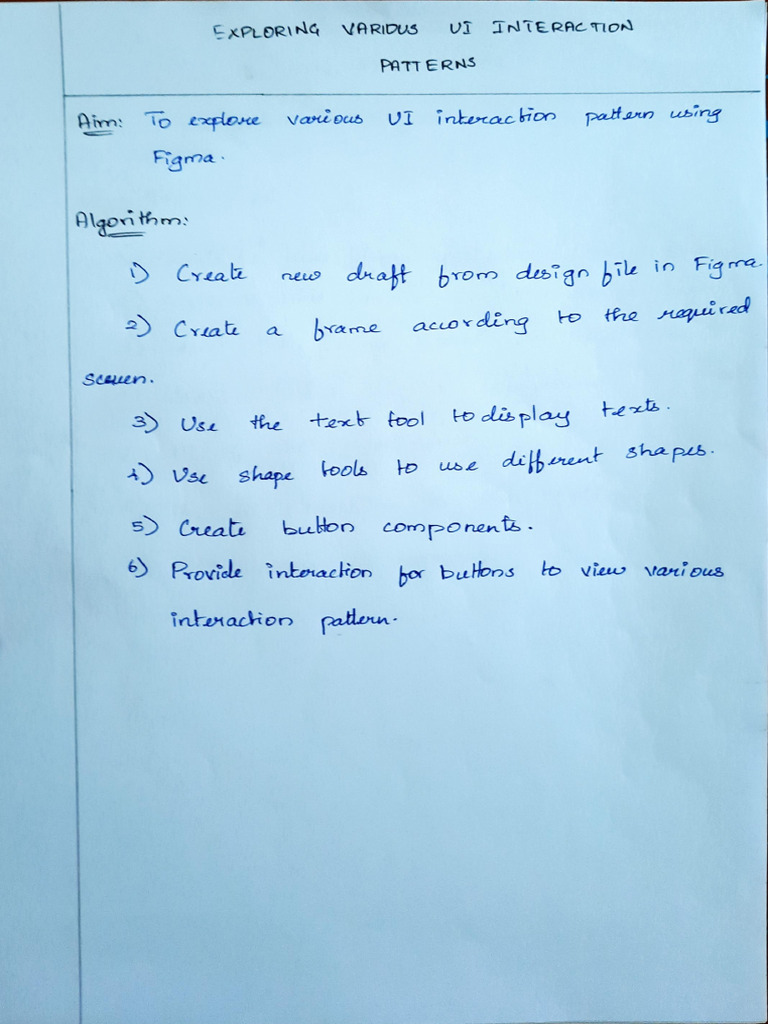 EXPLORING VARIOUS UI INTERACTION
PATTERNS
Aim: To explore various UI interaction pattern using
Figma.
Algorithm:
1) Create new draft from design file in Figma.
2) Create a frame according to the required
screen.
3) Use the text tool to display texts.
4) Use shape tools to use different shapes.
5) Create button components.
6) Provide interaction for buttons to view various
interaction pattern.